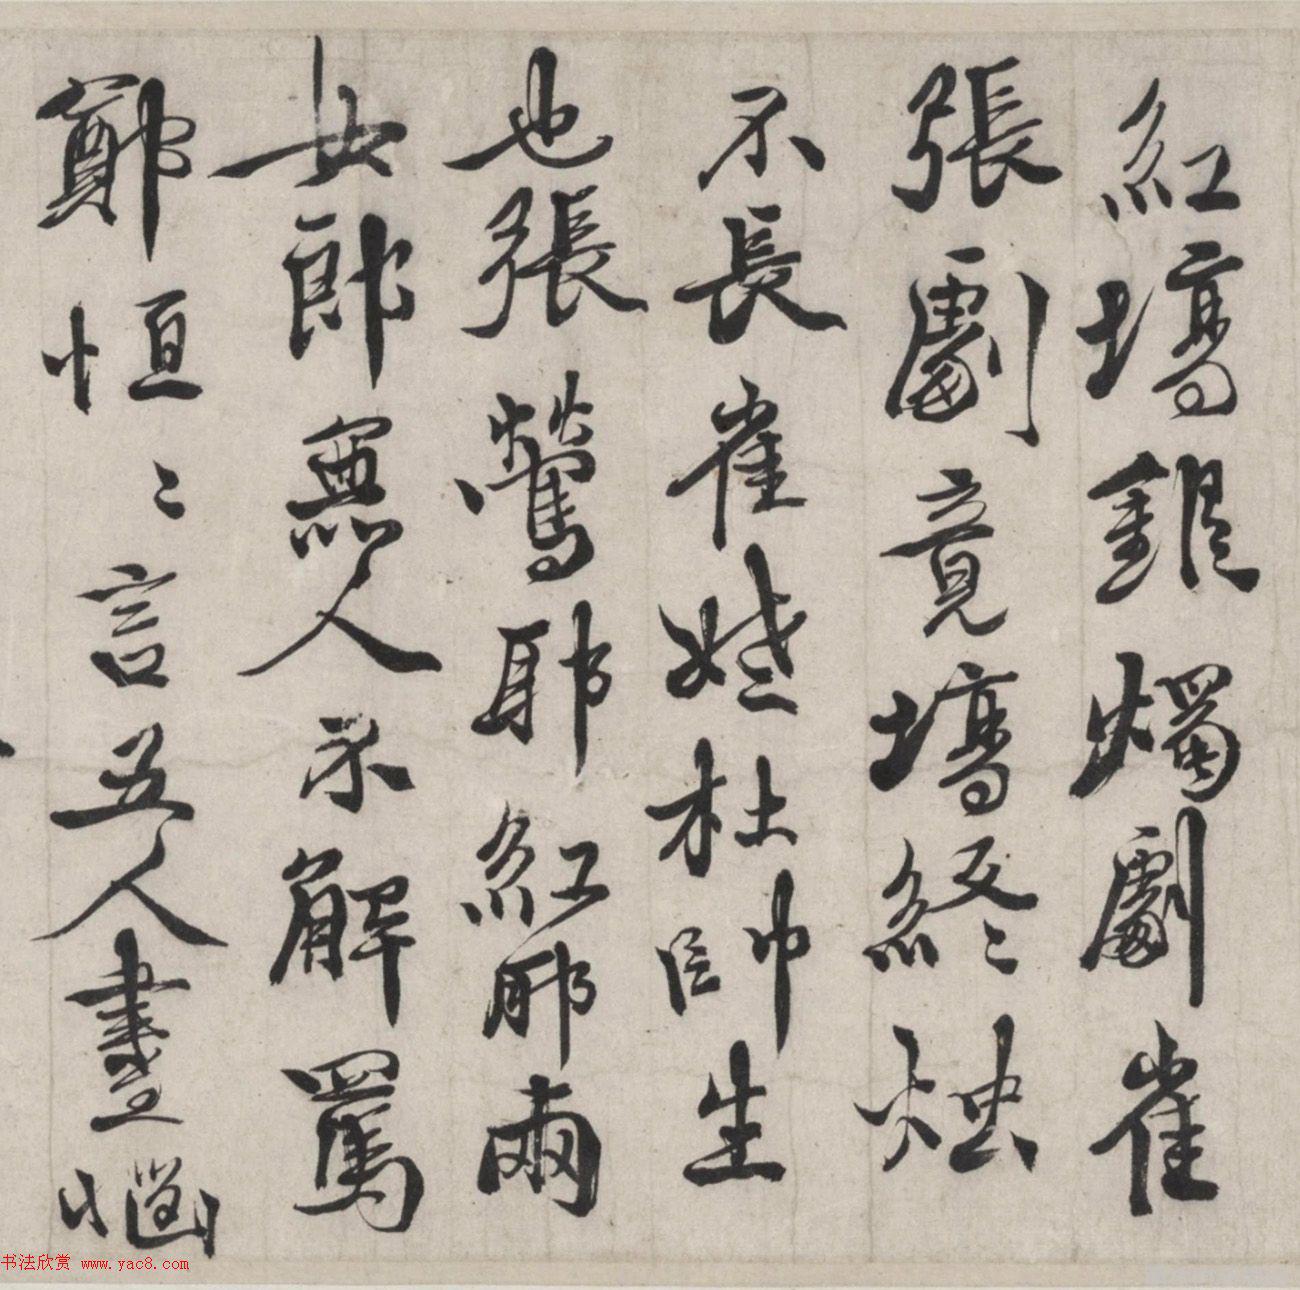 紅墻銀燭劇崔
張劇竟墻終〻燭
不長崔姥杜帥生
也張鶯耶紅耶兩
女郎無人不解罵
鄭恒〻言五人盡惱
书法欣赏 www.yac8.com